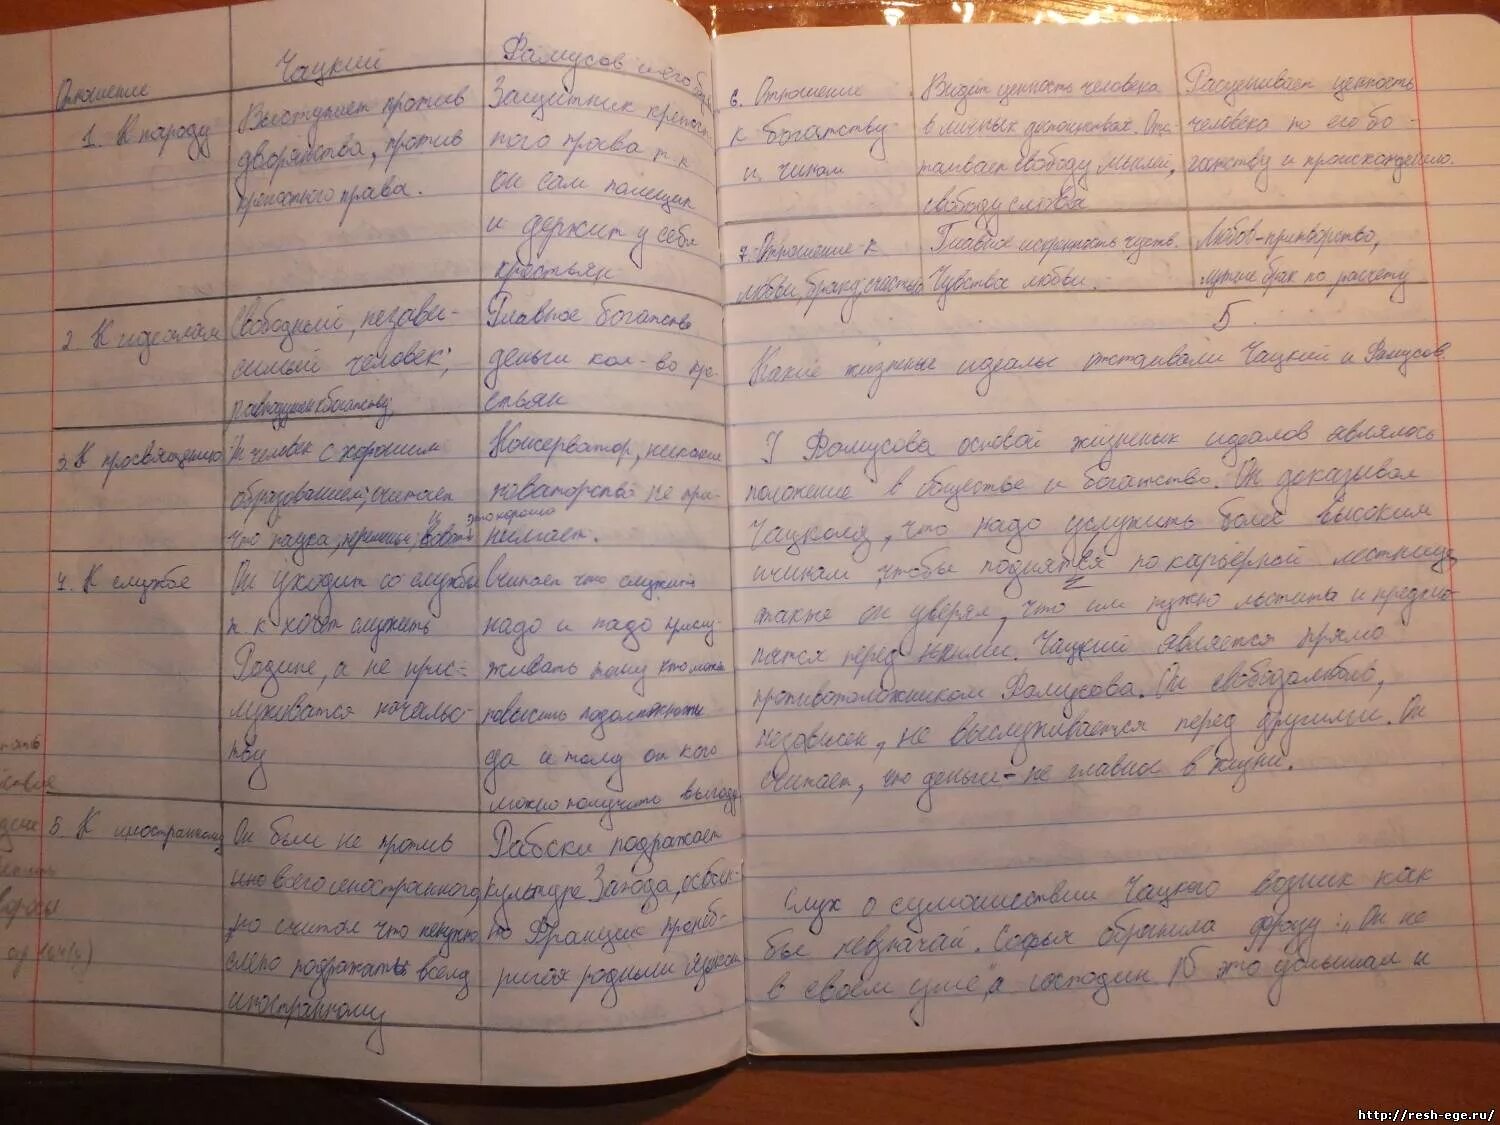 Отношение
Чацкий
Фамусов и его общ
1. К народу
Выступает против
дворянства, против
крепостного права.
Защитник крепост-
ного права т к
он сам помещик
и держит у себя
крестьян
2. К идеалам
Свободный, незави-
симый человек;
равнодушен к богатству
Главное богатство
деньги кол-во кре-
стьян
3. К просвящению
человек с хорошим
образованием, считает
что наука, перемены,
это хорошо
Консерватор, никакие
новаторства не при-
нимает.
4. К службе
Он уходит со службы
т к хочет служить
Родине, а не прис-
луживатся начальс-
тву
считает что служить
надо и надо прислу-
живать тому кто может
повысить подолжности
да и тому от кого
можно получить выгоду
5. К иностранному
Он был не против
всего иностранного,
но считал что ненужно
слепо подражать всему
иностранному
Рабски подражает
культуре Запада, особен-
но Франции пренеб-
родным языком
6. Отношение
к богатству
и чинам
Видит ценность человека
в личных достоинствах. Отс-
таивает свободу мысли,
свободу слова
Расценивает ценность
человека по его бо-
гатству и происхождению.
7. Отношение к
любви, браку, счастью
Главное искренность чуств.
Чувства любви.
Любов-притворство,
лучше брак по расчету
5
Какие жизненые идеалы отстаивали Чацкий и Фамусов.
У Фамусова основой жизненых идеалов являлось
положение в обществе и богатство. Он доказывал
Чацкому, что надо услужить более высоким
чинам, чтобы поднятся по карьерной лестнице,
также он уверял, что им нужно льстить и преклo-
нятся перед ними. Чацкий является прямо
противоположником Фамусова. Он свободолюбив,
независем, не выслуживается перед другими. Он
считает, что деньги - не главное в жизни.
Слух о сумошествии Чацкого возник как
бы невзначай. Софья обранила фразу: „Он не
в своём уме", а господин N это услышал и
http://resh-ege.ru/